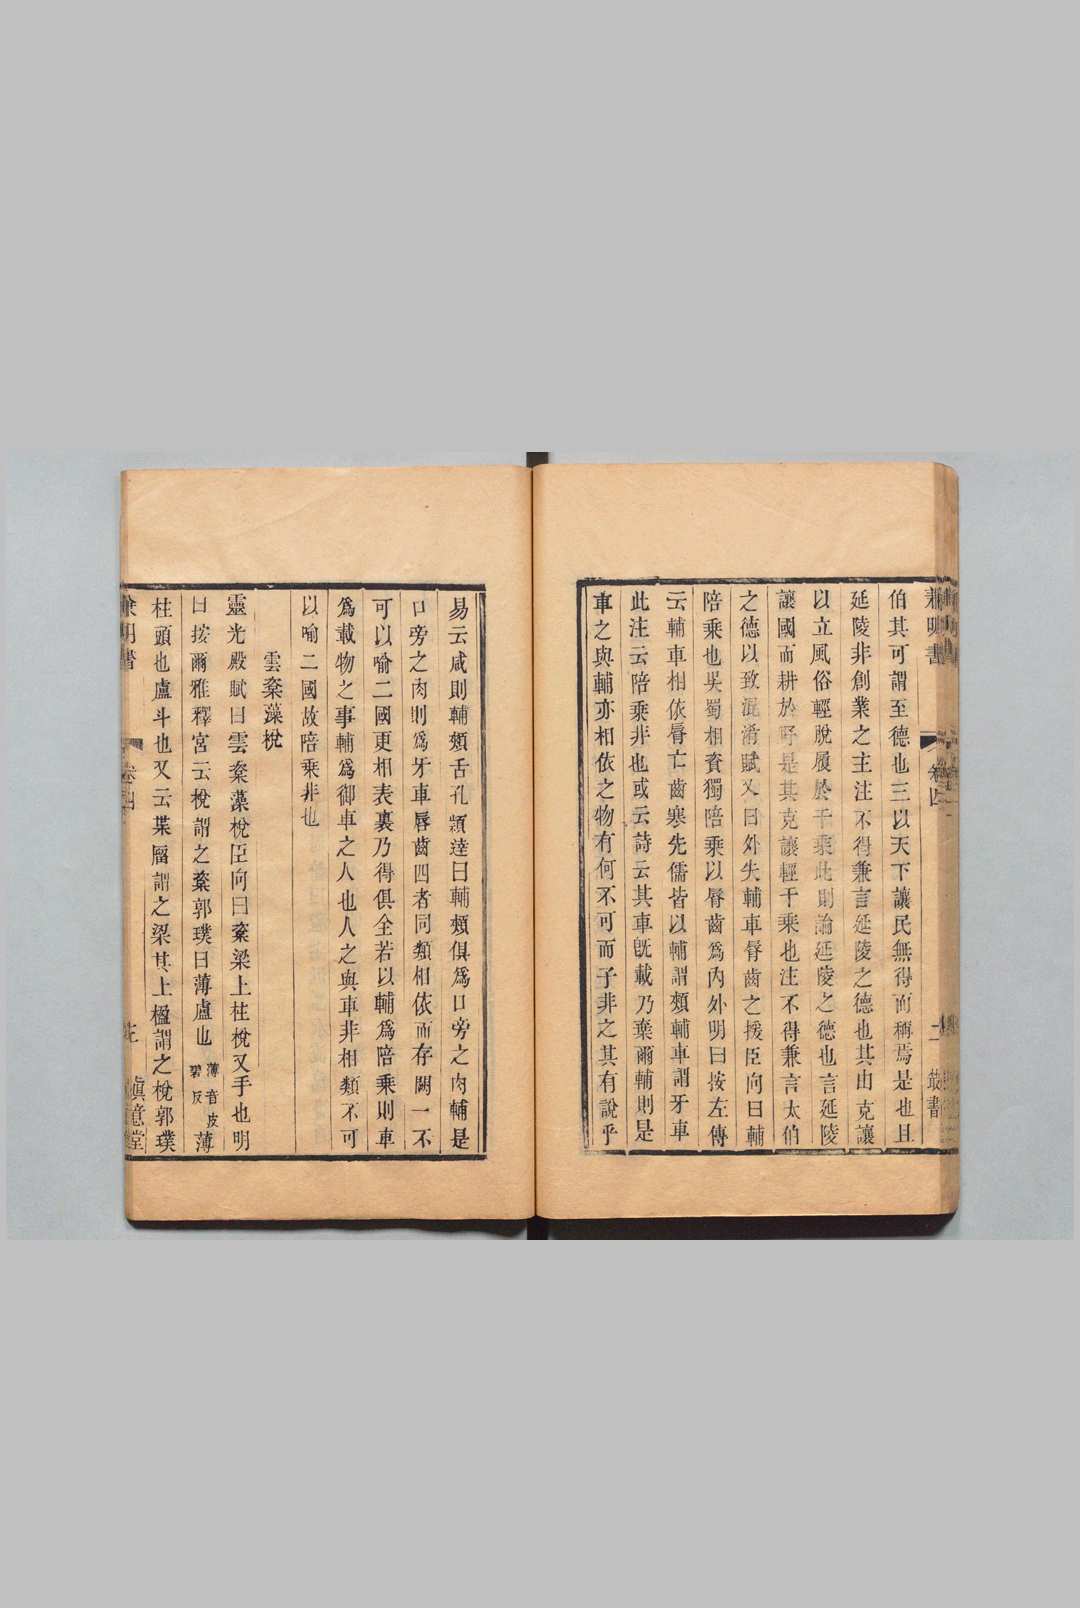 兼明書
卷四
叢書
伯其可謂至德也三以天下讓民無得而稱焉是也且
延陵非創業之主注不得兼言延陵之德也其由克讓
以立風俗輕脫屨於千乘此則論延陵之德也言延陵
讓國而耕於野是其克讓輕千乘也注不得兼言太伯
之德以致混淆賦又曰外失輔車脣齒之援臣向曰輔
陪乘也吳蜀相資獨陪乘以脣齒爲內外明曰按左傳
云輔車相依脣亡齒寒先儒皆以輔謂頰輔車謂牙車
此注云陪乘非也或云詩云其車旣載乃棄爾輔則是
車之與輔亦相依之物有何不可而子非之其有說乎
易云咸則輔頰舌孔穎達曰輔頰俱爲口旁之肉輔是
口旁之肉則爲牙車脣齒四者同類相依而存闕一不
可以喻二國更相表裏乃得俱全若以輔爲陪乘則車
爲載物之事輔爲御車之人也人之與車非相類不可
以喻二國故陪乘非也
雲楶藻梲
靈光殿賦曰雲楶藻梲臣向曰楶梁上柱梲叉手也明
曰按爾雅釋宮云梲謂之楶郭璞曰薄盧也薄音皮碧反薄
柱頭也盧斗也又云杗廇謂之梁其上楹謂之梲郭璞
兼明書
卷四
七
眞意堂